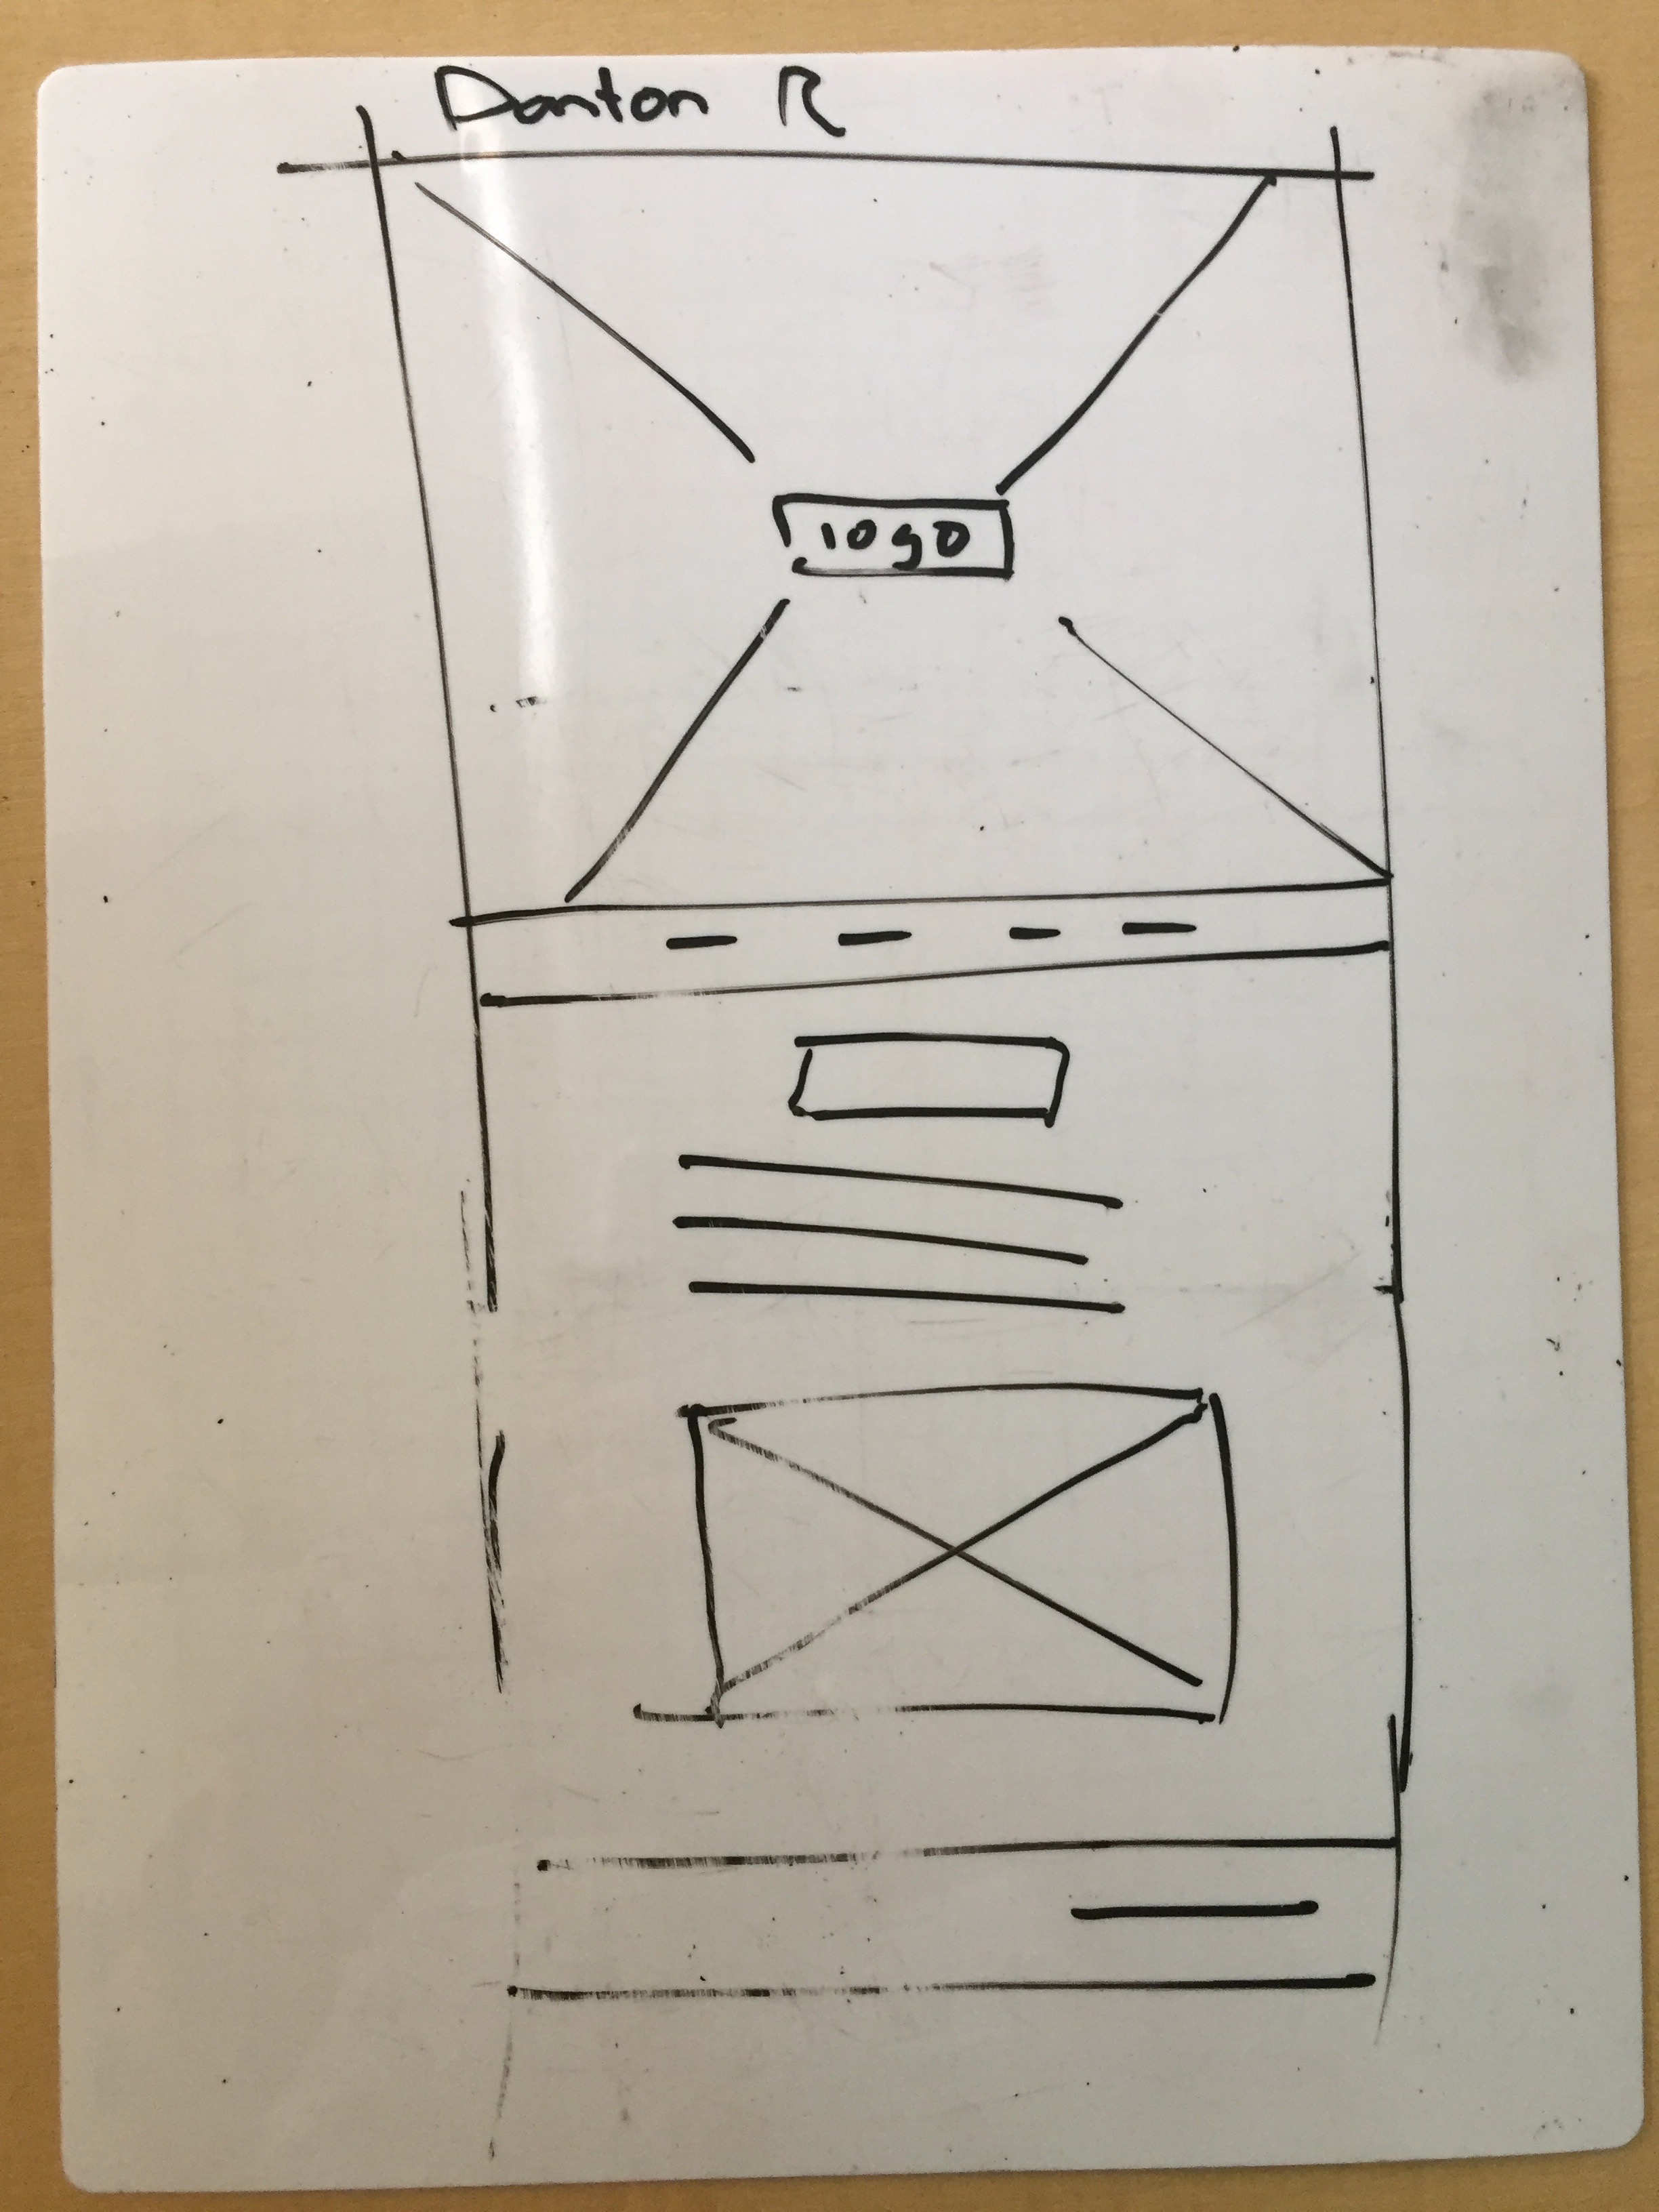 Danton R
logo